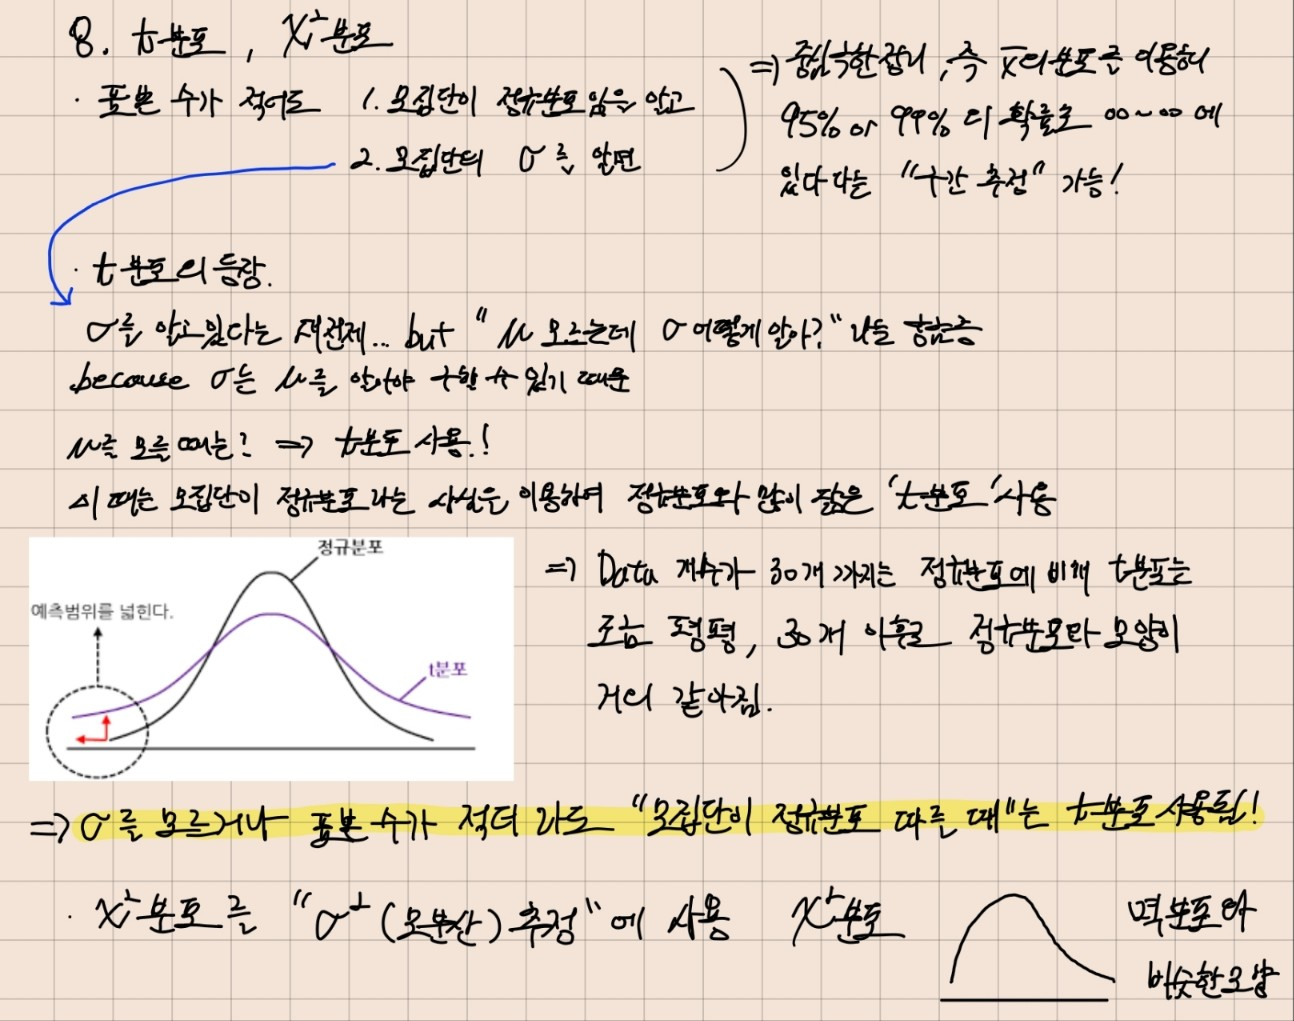 8. t분포, χ²분포
· 표본 수가 적어도 1. 모집단이 정규분포임을 알고
2. 모집단의 σ를 알면
⇒ 중심극한정리, 즉 x̄의 분포를 이용해
95% or 99%의 확률로 ∞~∞에
있다 다는 "구간 추정" 가능!
· t분포의 등장.
σ를 알고있다는 대전제... but "μ 모르는데 σ 어떻게 알아?" 라는
because σ는 μ를 알아야 구할 수 있기 때문
μ를 모를 때는? ⇒ t분포 사용!
이 때는 모집단이 정규분포라는 사실을 이용하여 정규분포와 많이 닮은 't분포' 사용
정규분포
예측범위를 넓힌다.
t분포
⇒ Data 개수가 30개 까지는 정규분포에 비해 t분포는
조금 평평, 30개 이후로 정규분포와 모양이
거의 같아짐.
⇒ σ를 모르거나 표본 수가 적더라도 "모집단이 정규분포 따를 때"는 t분포 사용됨!
· χ²분포를 "σ²(모분산) 추정"에 사용 χ²분포
비슷한 모양